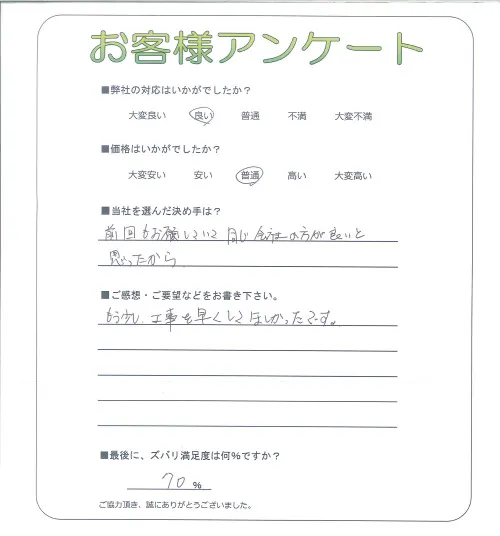 お客様アンケート
■弊社の対応はいかがでしたか？
大変良い 良い 普通 不満 大変不満
■価格はいかがでしたか？
大変安い 安い 普通 高い 大変高い
■当社を選んだ決め手は？
前回もお願いしていて同じ会社の方が良いと
思ったから
■ご感想・ご要望などをお書き下さい。
もう少し、工事を早くしてほしかったです。
■最後に、ズバリ満足度は何％ですか？
70 %
ご協力頂き、誠にありがとうございました。